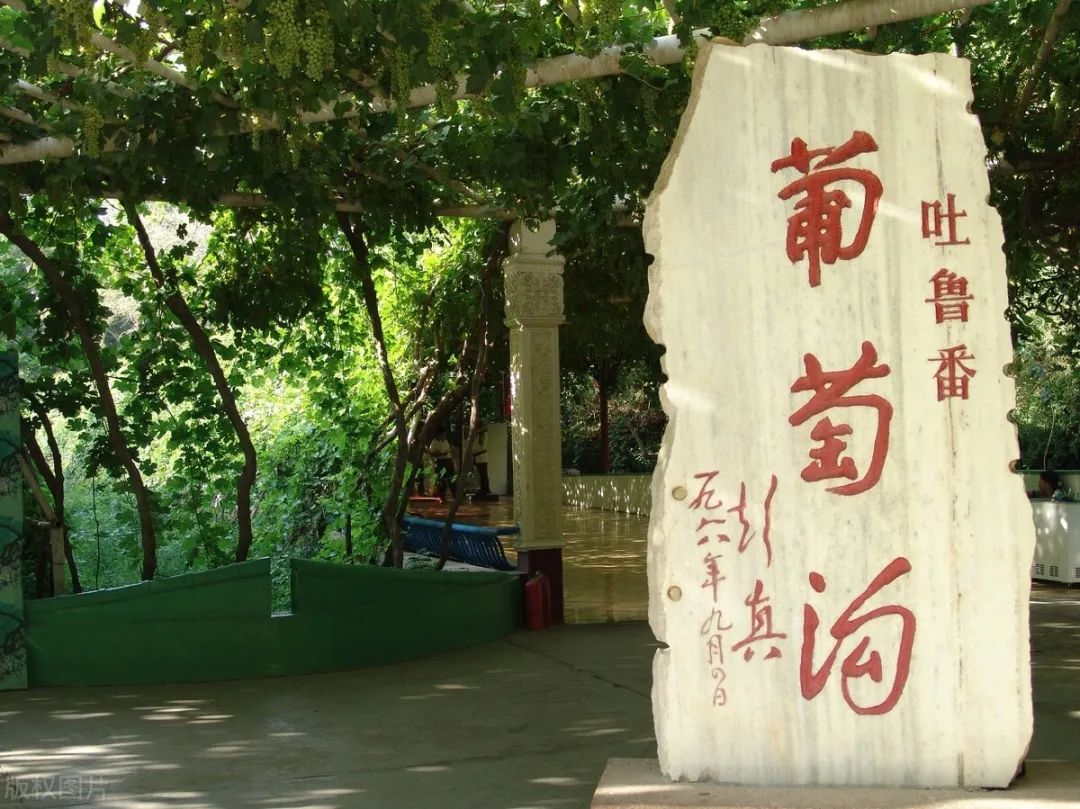 吐鲁番
葡萄沟
彭真
一九八六年九月四日
版权图片